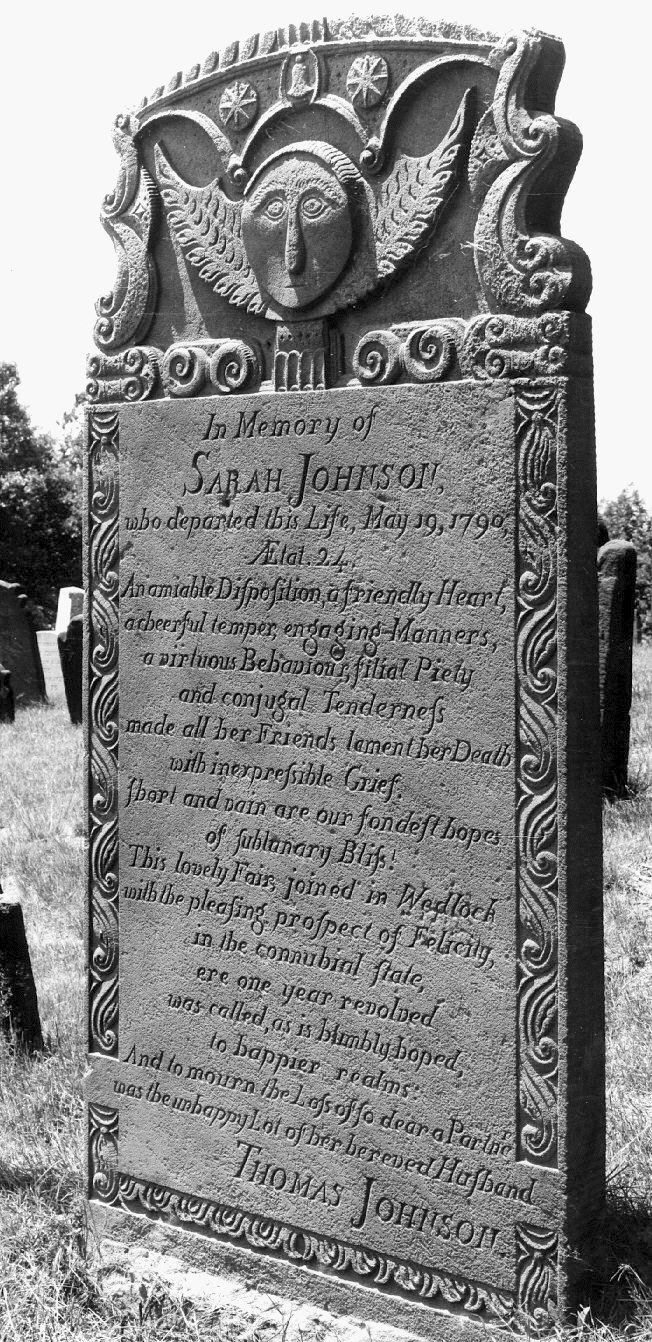 In Memory of
SARAH JOHNSON,
who departed this Life, May 19, 1790,
Ætat. 24.
An amiable Diſpoſition, a friendly Heart,
a cheerful temper, engaging Manners,
a virtuous Behaviour, filial Piety
and conjugal Tenderneſs
made all her Friends lament her Death
with inexpreſsible Grief.
Short and vain are our fondeſt hopes
of ſublunary Bliſs!
This lovely Fair, joined in Wedlock
with the pleaſing proſpect of Felicity,
in the connubial ſtate,
ere one year revolved
was called, as is humbly hoped,
to happier realms:
And to mourn the Loſs of ſo dear a Partnr
was the unhappy Lot of her bereved Huſband
THOMAS JOHNSON.